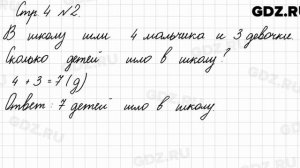 Стр. 4 №2. GDZ.RU
В школу шли 4 мальчика и 3 девочки.
Сколько детей шло в школу?
4 + 3 = 7 (д)
Ответ: 7 детей шло в школу